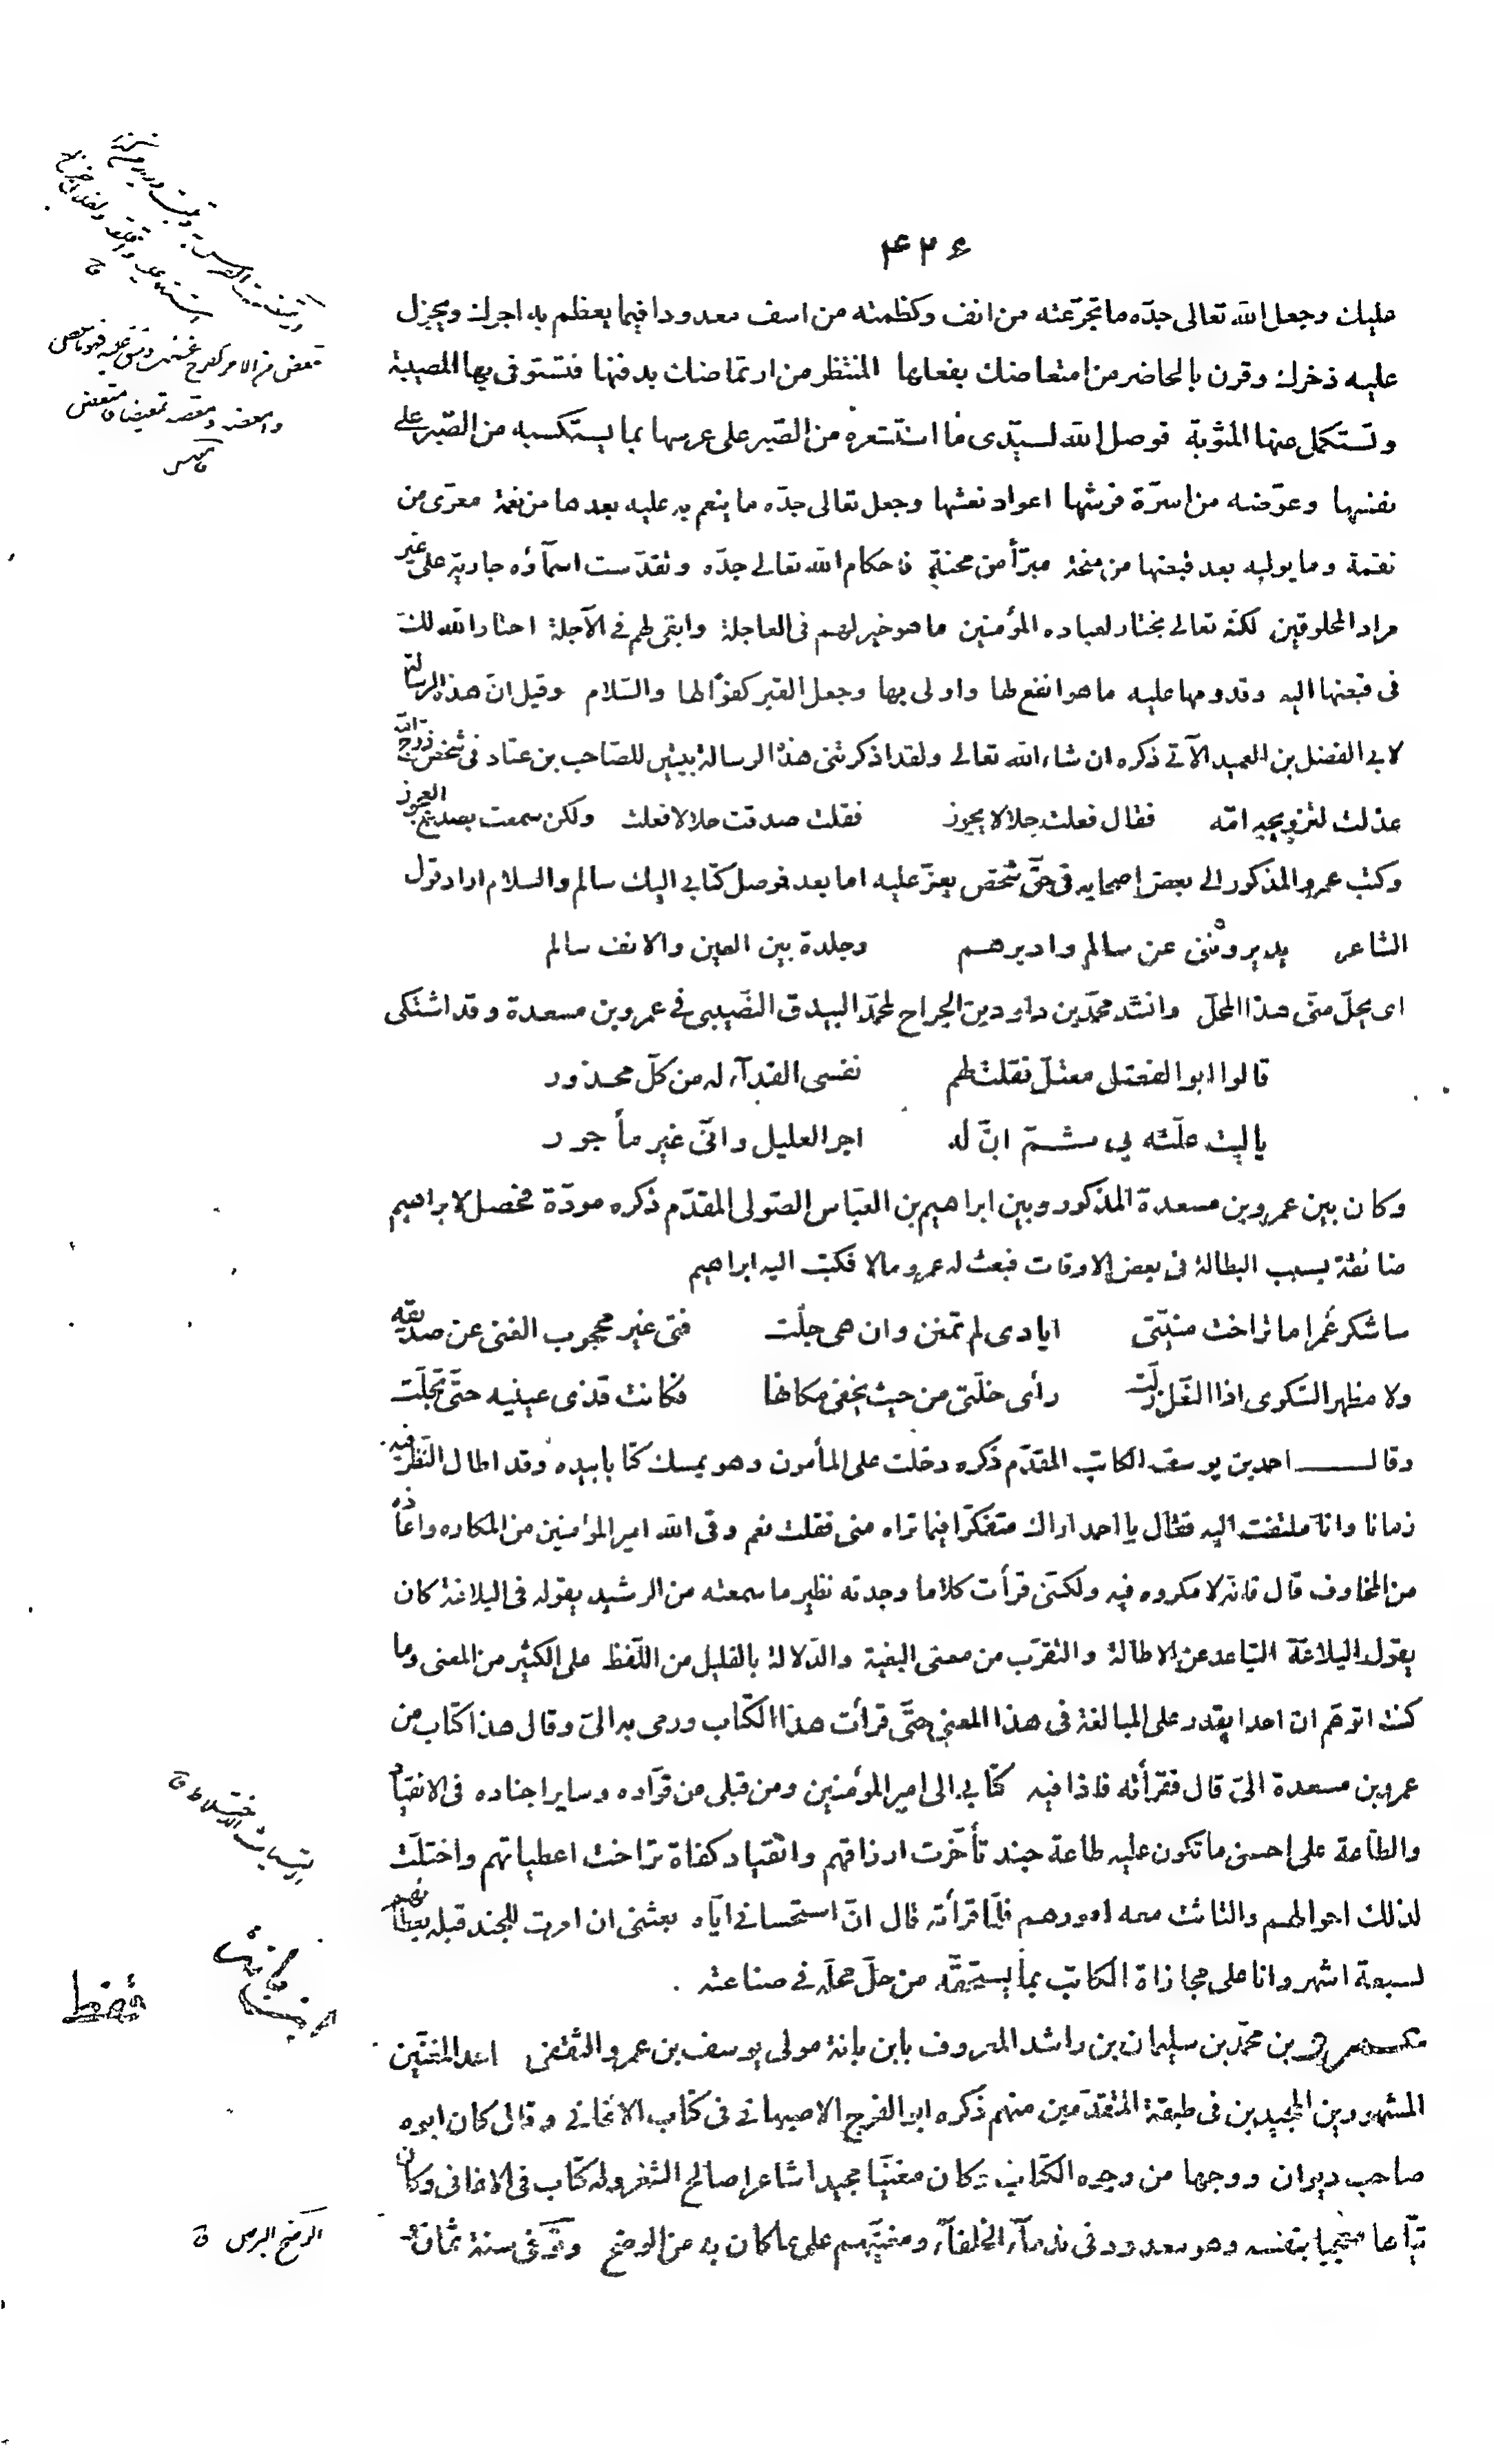 ۴۲۶
عليك وجعل الله تعالى جدّه ما تجرّعته من انف وكظمته من اسف معدودا فيما يعظم به اجرك ويجزل
عليه ذخرك وقرن بالحاضر من امتعاضك بفعلها المنتظر من ارتماضك بدفنها فتستوفى بها المصيبة
وتستكمل عنها المثوبة فوصل الله لسيّدى ما استشعره من الصّبر على عرسها بما يستكسبه من الصّبر على
نفسها وعوّضه من اسرّة فرشها اعواد نعشها وجعل تعالى جدّه ما ينعم به عليه بعدها من نعمة معرّى من
نقمة وما يوليه بعد قبضها من منحة مبرّأ من محنة فاحكام الله تعالى جدّه وتقدّست اسمآؤه جارية على غير
مراد المخلوقين لكنّه تعالى يختار لعباده المؤمنين ما هو خير لهم فى العاجلة وابقى لهم فى الآجلة اختار الله لك
فى قبضها اليه وقدومها عليه ما هو انفع لها واولى بها وجعل القبر كفوًا لها والسّلام وقيل انّ هذه الرسالة
لابى الفضل بن العميد الآتى ذكره ان شاء الله تعالى ولقد اذكرتنى هذه الرسالة بيتين للصّاحب بن عبّاد فى شخص زوّج امّه
عذلت لتزويجه امّه فقال فعلت حلالا يجوز فقلت صدقت حلالا فعلت ولكن سمحت بصدع العجوز
وكتب عمرو المذكور الى بعض اصحابه فى حقّ شخص يعزّ عليه اما بعد فوصل كتابى اليك سالم والسلام اراد قول
الشاعر يديروننى عن سالم واديرهم وجلدة بين العين والانف سالم
اى يحلّ منّى هذا المحلّ وانشد محمّد بن داود بن الجراح لمحمّد البيدق النّصيبى فى عمرو بن مسعدة وقد اشتكى
قالوا ابو الفضل معتلّ فقلت لهم نفسى الفدآء له من كلّ محذور
يا ليت علّته بى ثمّ انّ له اجر العليل وانّى غير مأجور
وكان بين عمرو بن مسعدة المذكور وبين ابراهيم بن العبّاس الصّولى المقدّم ذكره مودّة فحصل لابراهيم
ضائقة بسبب البطالة فى بعض الاوقات فبعث له عمرو مالا فكتب اليه ابراهيم
ساشكر عمرا ما تراخت منيّتى ايادى لم تمنن وان هى جلّت فتى غير محجوب الغنى عن صديقه
ولا مظهر الشكوى اذا النّعل زلّت رأى خلّتى من حيث يخفى مكانها فكانت قذى عينيه حتّى تجلّت
وقال احمد بن يوسف الكاتب المقدّم ذكره دخلت على المأمون وهو يمسك كتابا بيده وقد اطال النّظر فيه
زمانا وانا ملتفت اليه فقال يا احمد اراك متفكّرا فيما تراه منى فقلت نعم وقى الله امير المؤمنين من المكاره واعاذه
من المخاوف قال فانه لا مكروه فيه ولكنّى قرأت كلاما وجدته نظير ما سمعته من الرشيد يقوله فى البلاغة كان
يقول البلاغة التباعد عن الاطالة والتقرّب من معنى البغية والدّلالة بالقليل من اللّفظ على الكثير من المعنى وما
كنت اتوهّم ان احدا يقدر على المبالغة فى هذا المعنى حتّى قرأت هذا الكتاب ورمى به الىّ وقال هذا كتاب من
عمرو بن مسعدة الىّ قال فقرأته فاذا فيه كتابى الى امير المؤمنين ومن قبلى من قوّاده وساير اجناده فى الانقياد
والطّاعة على احسن ما تكون عليه طاعة جند تأخّرت ارزاقهم وانقياد كفاة تراخت اعطياتهم واختلّت
لذلك احوالهم والتاثت معه امورهم فلمّا قرأته قال انّ استحسانى ايّاه بعثنى ان امرت للجند قبله بعطائهم
لسبعة اشهر وانا على مجازاة الكاتب بما يستحقّه من حلّ محلّه فى صناعته
عمرو بن محمّد بن سليمان بن راشد المعروف بابن بانة مولى يوسف بن عمرو الثقفى احد المغنّين
المشهورين المجيدين فى طبقة المتقدّمين منهم ذكره ابو الفرج الاصبهانى فى كتاب الاغانى وقال كان ابوه
صاحب ديوان ووجها من وجوه الكتّاب وكان مغنّيا مجيدا شاعرا صالح الشعر وله كتاب فى الاغانى وكان
تيّاها معجبا بنفسه وهو معدود فى ندمآء الخلفآء ومغنّيهم على ما كان به من الوضح وتوفّى سنة ثمان
الوضح البرص